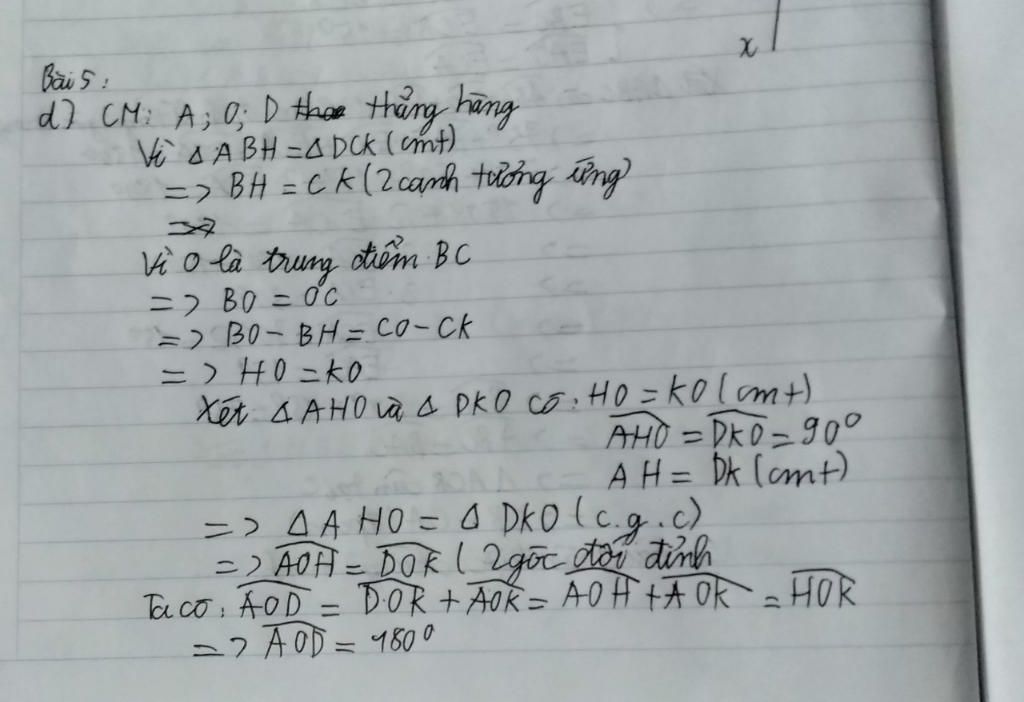 x
Bài 5:
d) CM: A; O; D thẳng hàng
Vì △ABH = △DCK (cmt)
=> BH = CK (2 cạnh tưởng ứng)
=>
Vì O là trung điểm BC
=> BO = OC
=> BO - BH = CO - CK
=> HO = KO
Xét △AHO và △DKO có: HO = KO (cmt)
AHO = DKO = 90°
AH = DK (cmt)
=> △AHO = △DKO (c.g.c)
=> AOH = DOK (2 góc đối đỉnh
Ta có: AOD = DOK + AOK = AOH + AOK = HOK
=> AOD = 180°